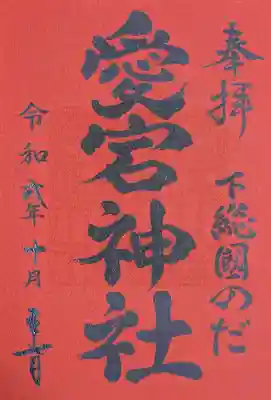 奉拝 下総國のだ
愛宕神社
令和弐年十月